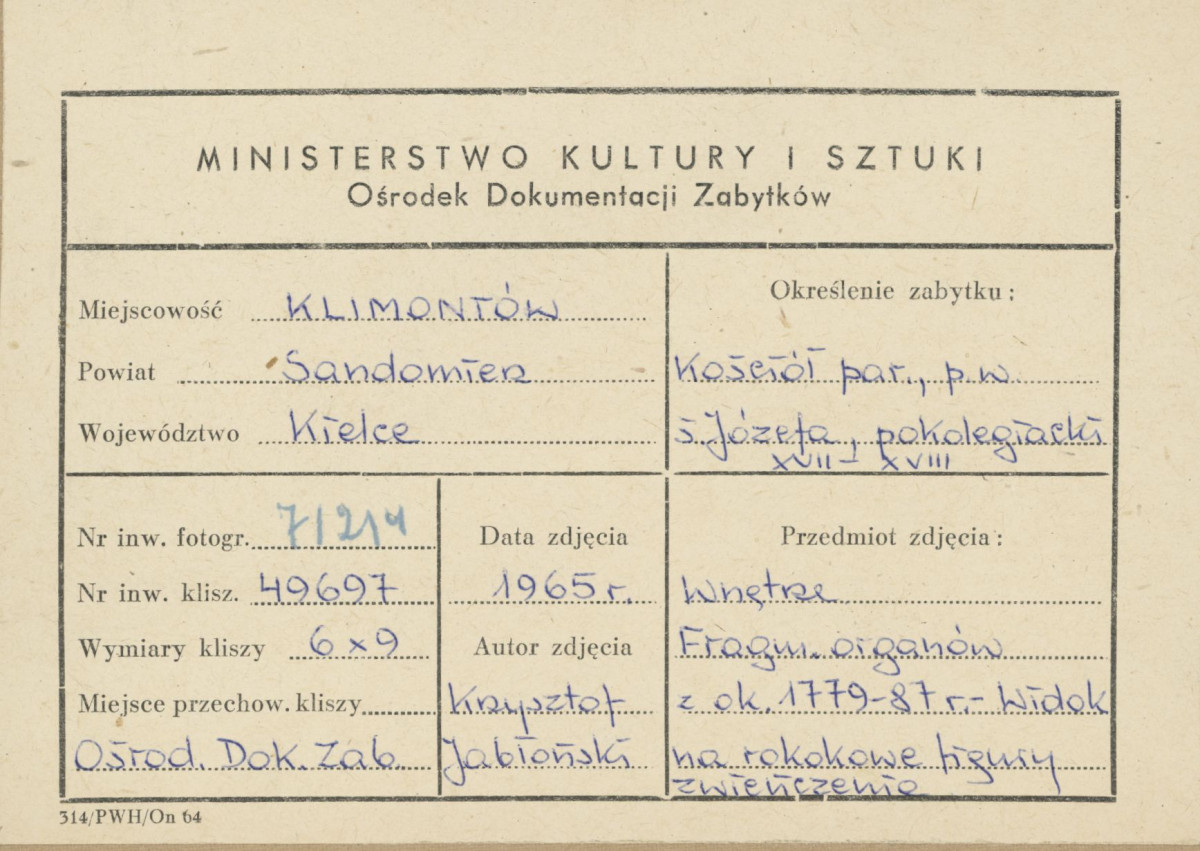 MINISTERSTWO KULTURY I SZTUKI
Ośrodek Dokumentacji Zabytków
Miejscowość KLIMONTÓW
Powiat Sandomierz
Województwo Kielce
Określenie zabytku:
Kościół par., p.w.
ś Józefa, pokolegiacki
XVII - XVIII
Nr inw. fotogr. 71214
Nr inw. klisz. 49697
Wymiary kliszy 6 x 9
Miejsce przechow. kliszy
Ośrod. Dok. Zab.
Data zdjęcia
1965 r.
Autor zdjęcia
Krzysztof
Jabłoński
Przedmiot zdjęcia:
Wnętrze
Fragm. organów
z ok. 1779-87 r. - Widok
na rokokowe figury
zwieńczenia
314/PWH/On 64